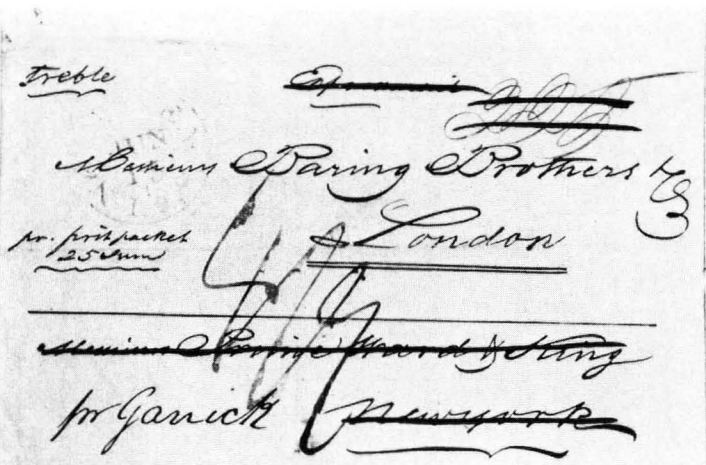 treble
Messieurs Baring Brothers & Co
pr. first packet
25 June
London
Messieurs Prime Ward & King
pr Garrick Newyork